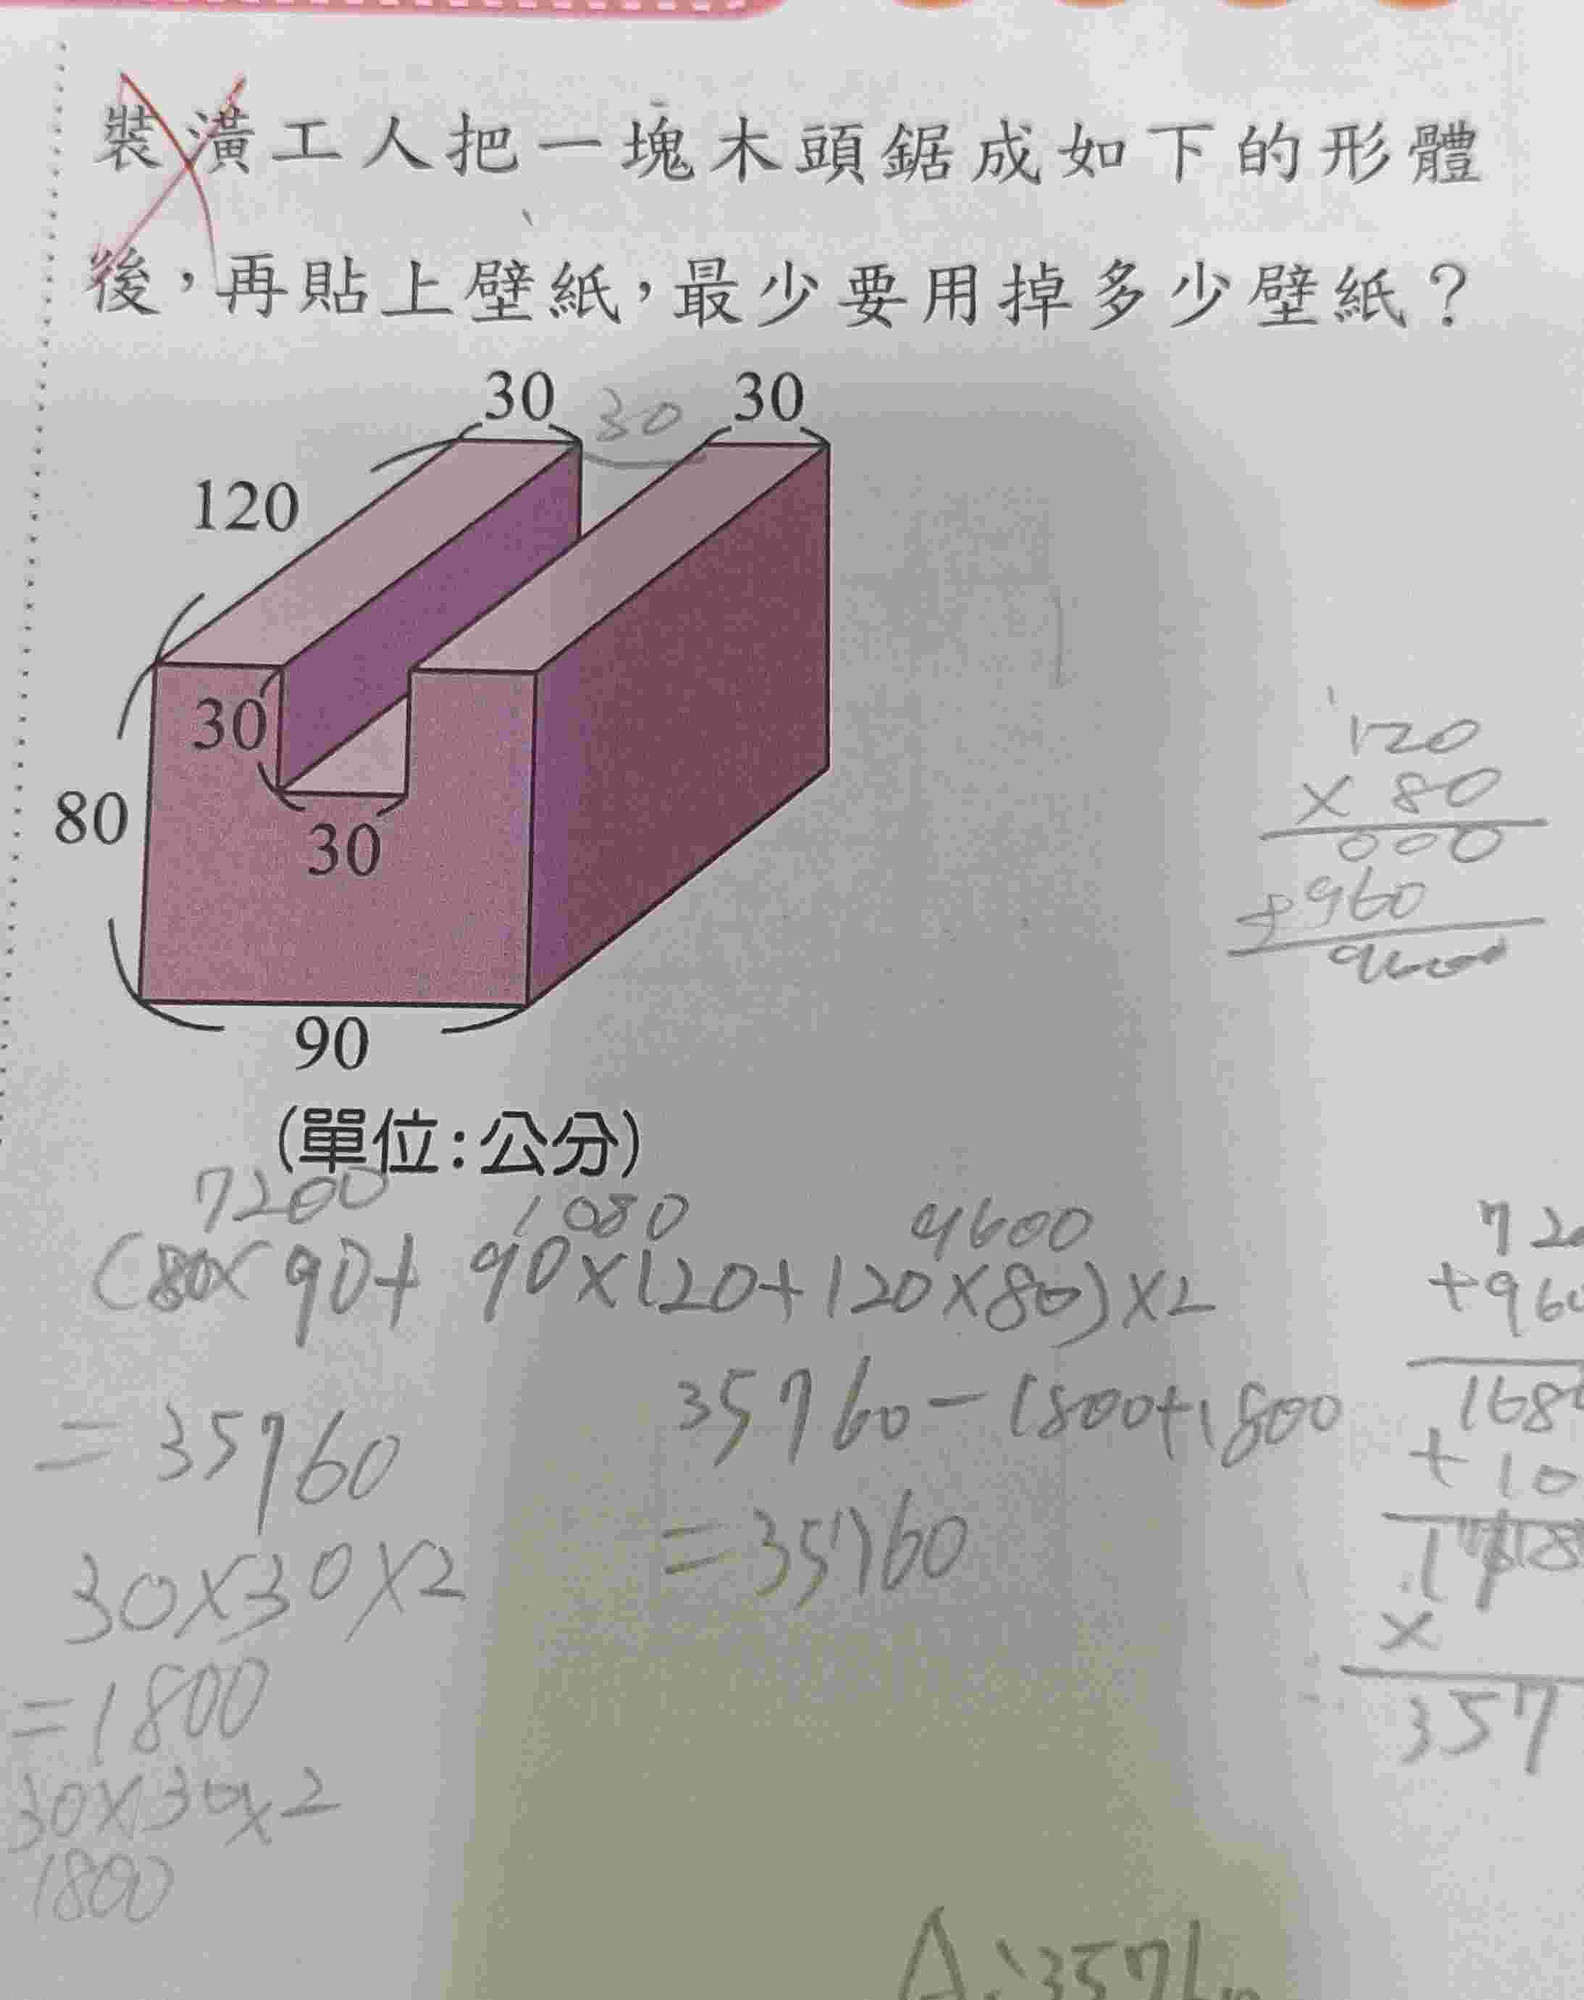 裝潢工人把一塊木頭鋸成如下的形體
後，再貼上壁紙，最少要用掉多少壁紙？
30 30 30
120
30
80
30
90
(單位:公分)
120
× 80
000
+960
9600
7200 1080 9600
(80×90+90×120+120×80)×2
=35760
35760-1800+1800
=35760
30×30×2
=1800
30×30×2
1800
720
+960
168
+10
×
357
A:3576